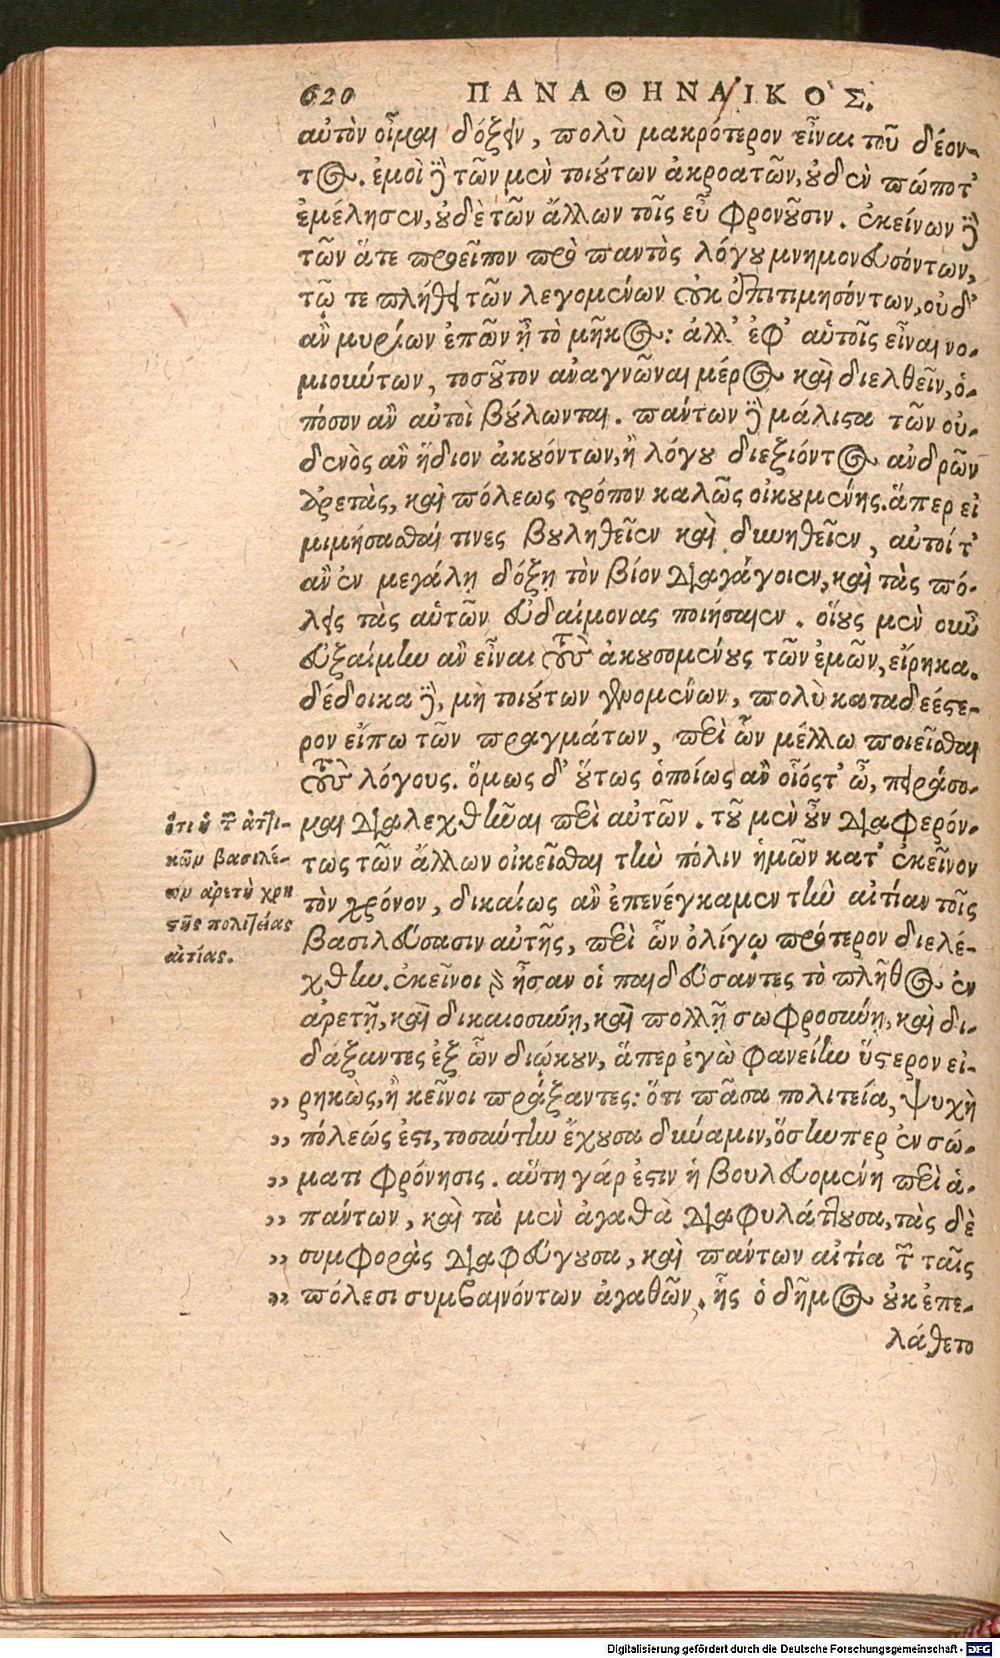 620 ΠΑΝΑΘΗΝΑΙΚΟΣ.
αὐτὸν οἶμαι δόξειν, πολὺ μακρότερον εἶναι τοῦ δέον-
τος. ἐμοὶ δὲ τῶν μὲν τοιούτων ἀκροατῶν, οὐδὲν πώποτ'
ἐμέλησεν, οὐδὲ τῶν ἄλλων τοῖς εὖ φρονοῦσιν. ἐκείνων δὲ
τῶν ἅτε προεῖπον πρὸ παντὸς λόγου μνημονευσόντων,
τῷ τε πλήθει τῶν λεγομένων οὐκ ἐπιτιμησόντων, οὐδ'
ἂν μυρίων ἐπῶν ᾖ τὸ μῆκος: ἀλλ' ἐφ' αὑτοῖς εἶναι νο-
μιούντων, τοσοῦτον ἀναγνῶναι μέρος καὶ διελθεῖν, ὁ-
πόσον ἂν αὐτοὶ βούλωνται. πάντων δὲ μάλιστα τῶν οὐ-
δενὸς ἂν ἥδιον ἀκουόντων, ἢ λόγου διεξιόντος ἀνδρῶν
ἀρετὰς, καὶ πόλεως τρόπον καλῶς οἰκουμένης. ἅπερ εἰ
μιμήσασθαί τινες βουληθεῖεν καὶ δυνηθεῖεν, αὐτοί τ'
ἂν ἐν μεγάλῃ δόξῃ τὸν βίον διαγάγοιεν, καὶ τὰς πό-
λεις τὰς αὑτῶν εὐδαίμονας ποιήσαιεν. οἵους μὲν οὖν
εὐξαίμην ἂν εἶναι τοὺς ἀκουσομένους τῶν ἐμῶν, εἴρηκα.
δέδοικα δὲ, μὴ τοιούτων γενομένων, πολὺ καταδεέστε-
ρον εἴπω τῶν πραγμάτων, περὶ ὧν μέλλω ποιεῖσθαι
τοὺς λόγους. ὅμως δ' οὕτως ὁποίως ἂν οἷός τ' ὦ, πειράσο-
μαι διαλεχθῆναι περὶ αὐτῶν. τοῦ μὲν οὖν διαφερόν-
τως τῶν ἄλλων οἰκεῖσθαι τὴν πόλιν ἡμῶν κατ' ἐκεῖνον
τὸν χρόνον, δικαίως ἂν ἐπενέγκαμεν τὴν αἰτίαν τοῖς
βασιλεύσασιν αὐτῆς, περὶ ὧν ὀλίγῳ πρότερον διελέ-
χθην. ἐκεῖνοι γὰρ ἦσαν οἱ παιδεύσαντες τὸ πλῆθος ἐν
ἀρετῇ, καὶ δικαιοσύνῃ, καὶ πολλῇ σωφροσύνῃ, καὶ δι-
δάξαντες ἐξ ὧν διῴκουν, ἅπερ ἐγὼ φανείην ὕστερον εἰ-
,, ρηκὼς, ἢ κεῖνοι πράξαντες: ὅτι πᾶσα πολιτεία, ψυχὴ
,, πόλεώς ἐστι, τοσαύτην ἔχουσα δύναμιν, ὅσην περ ἐν σώ-
,, ματι φρόνησις. αὕτη γάρ ἐστιν ἡ βουλευομένη περὶ ἁ-
,, πάντων, καὶ τὰ μὲν ἀγαθὰ διαφυλάττουσα, τὰς δὲ
,, συμφορὰς διαφεύγουσα, καὶ πάντων αἰτία τῶν ταῖς
,, πόλεσι συμβαινόντων ἀγαθῶν. ἧς ὁ δῆμος οὐκ ἐπε-
λάθετο
ὅτι ἡ τῶν ἀττι-
κῶν βασιλέ-
ων ἀρετὴ χρη
τῆς πολιτείας
αἰτίας.
Digitalisierung gefördert durch die Deutsche Forschungsgemeinschaft - DFG